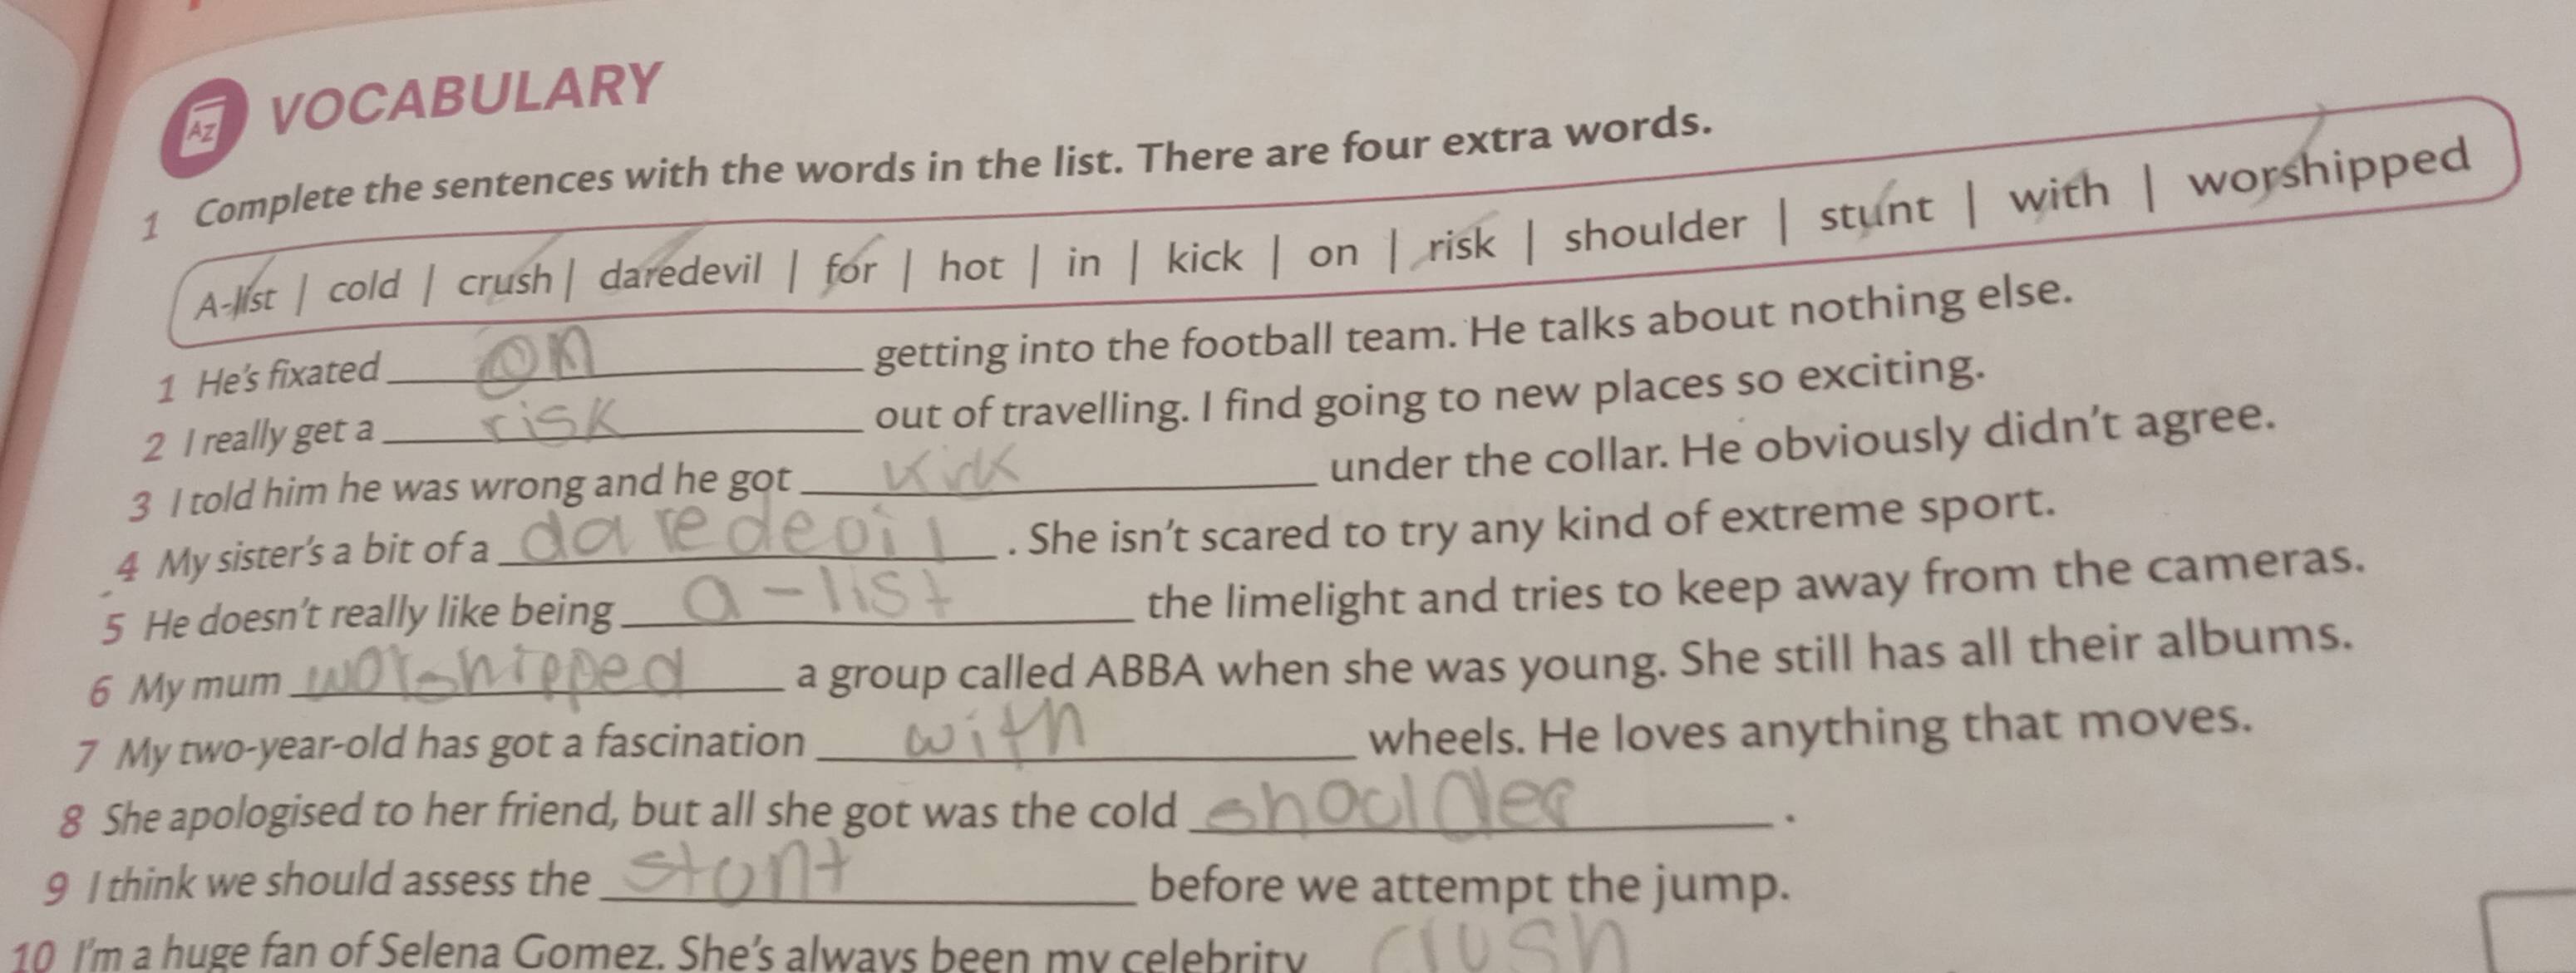 AZ VOCABULARY
1 Complete the sentences with the words in the list. There are four extra words.
A-list | cold | crush | daredevil | for | hot | in | kick | on | risk | shoulder | stunt | with | worshipped
1 He's fixated on getting into the football team. He talks about nothing else.
2 I really get a risk out of travelling. I find going to new places so exciting.
3 I told him he was wrong and he got kick under the collar. He obviously didn't agree.
4 My sister's a bit of a daredevil. She isn't scared to try any kind of extreme sport.
5 He doesn't really like being a-list the limelight and tries to keep away from the cameras.
6 My mum worshipped a group called ABBA when she was young. She still has all their albums.
7 My two-year-old has got a fascination with wheels. He loves anything that moves.
8 She apologised to her friend, but all she got was the cold shoulder.
9 I think we should assess the stunt before we attempt the jump.
10 I'm a huge fan of Selena Gomez. She's always been my celebrity crush